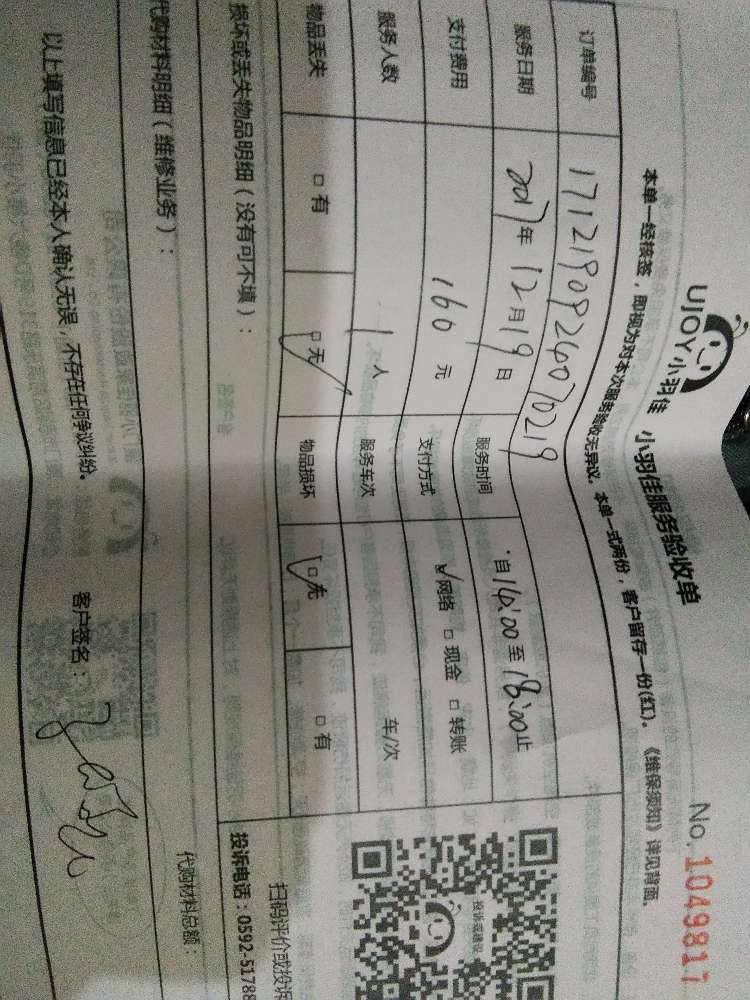 UJOY小羽佳 小羽佳服务验收单 No. 1049817
本单一经核签，即视为对本次服务验收无异议。本单一式两份，客户留存一份(红)。《维保须知》详见背面。
订单编号 1712190926070219
服务日期 2017年12月19日 服务时间 自14:00至18:00止
支付费用 160元 支付方式 ☑网络 □现金 □转账
服务人数 1人 服务车次 车/次
物品丢失 □有 ☑无 物品损坏 ☑无 □有
损坏或丢失物品明细（没有可不填）：
代购材料明细（维修业务）：
代购材料总额：
以上填写信息已经本人确认无误，不存在任何争议纠纷。 客户签名：
投诉或建议
扫码评价或投诉
投诉电话：0592-51788